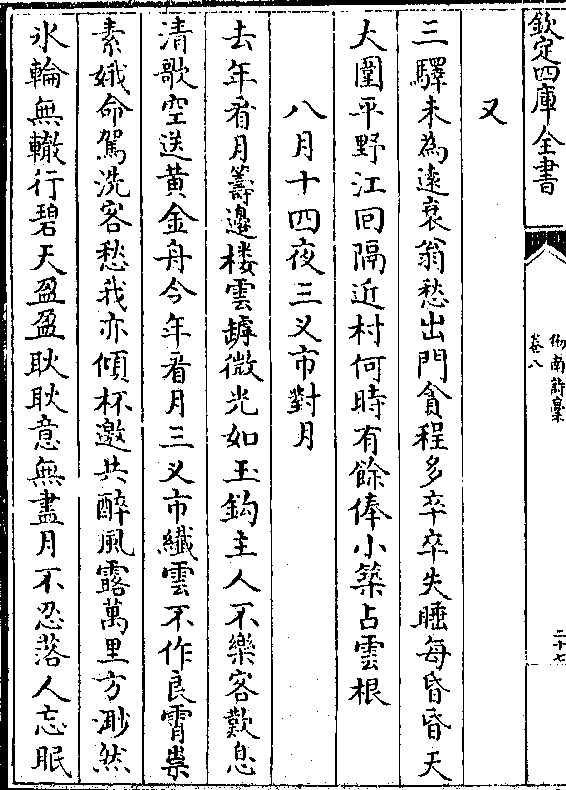 欽定四庫全書
劍南詩槀
卷八
二十七
又
三驛未為遠衰翁愁出門貪程多卒卒失睡每昏昏天
大圍平野江回隔近村何時有餘俸小築占雲根
八月十四夜三叉市對月
去年看月籌邊樓雲罅微光如玉鈎主人不樂客歎息
清歌空送黄金舟今年看月三叉市纖雲不作良霄祟
素娥命駕洗客愁我亦傾杯邀共醉風露萬里方渺然
氷輪無轍行碧天盈盈耿耿意無盡月不忍落人忘眠